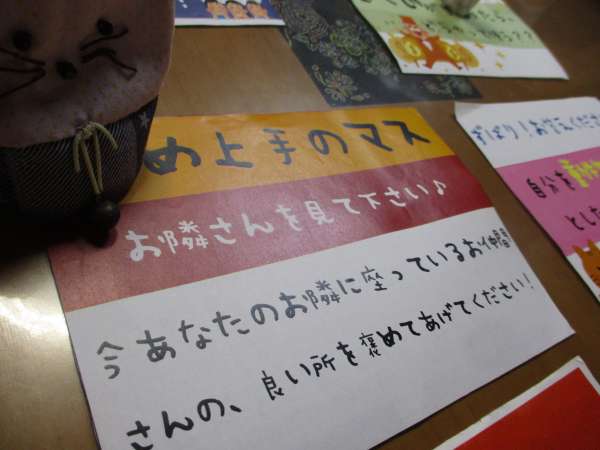 め上手のマス
お隣さんを見て下さい♪
今あなたのお隣に座っているお仲間
さんの、良い所を褒めてあげてください!
ずばり!お答えくださ
自分を動物
とした